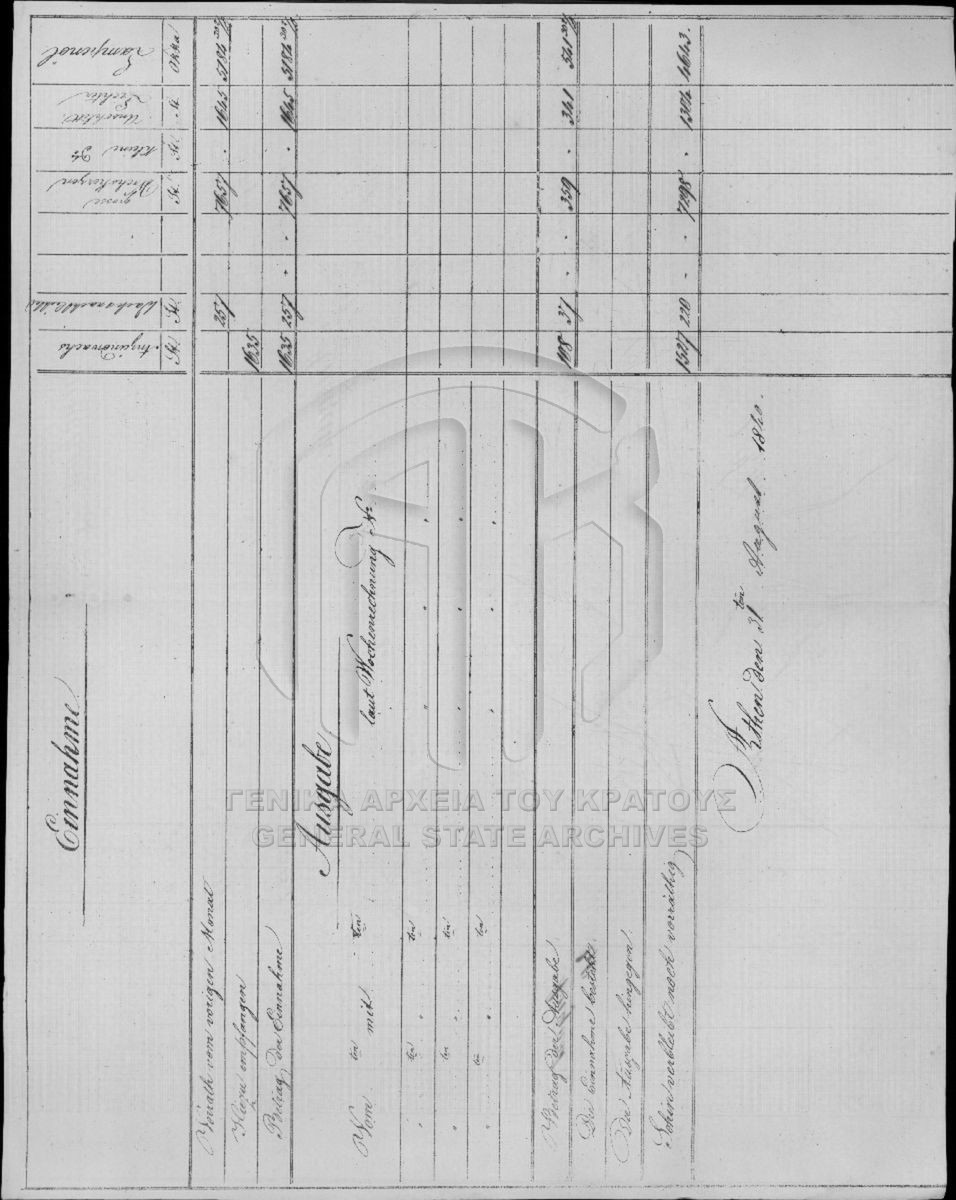 Einnahme
St. St. St. St. ℔ Okka
grosse
Klein
Lampenöl
Vorrath vom vorigen Monat 257 7657 . 1645 5184
Hiezu empfangen 1635
Betrag der Einnahme 1635 257 . . 7657 . 1645 5184
Ausgabe
Vom ten mit ten laut Wochenrechnung №
" ten " ten " " "
" ten " ten " " "
" ten " ten " " "
Betrag der Ausgabe 108 37 . . 359 . 341 541
Die Einnahme besteht
Die Ausgabe hingegen
Sohin verbleibt noch vorräthig 1527 220 . . 7298 . 1304 4643.
Athen den 31ten August 1840.
ΓΕΝΙΚΑ ΑΡΧΕΙΑ ΤΟΥ ΚΡΑΤΟΥΣ
GENERAL STATE ARCHIVES